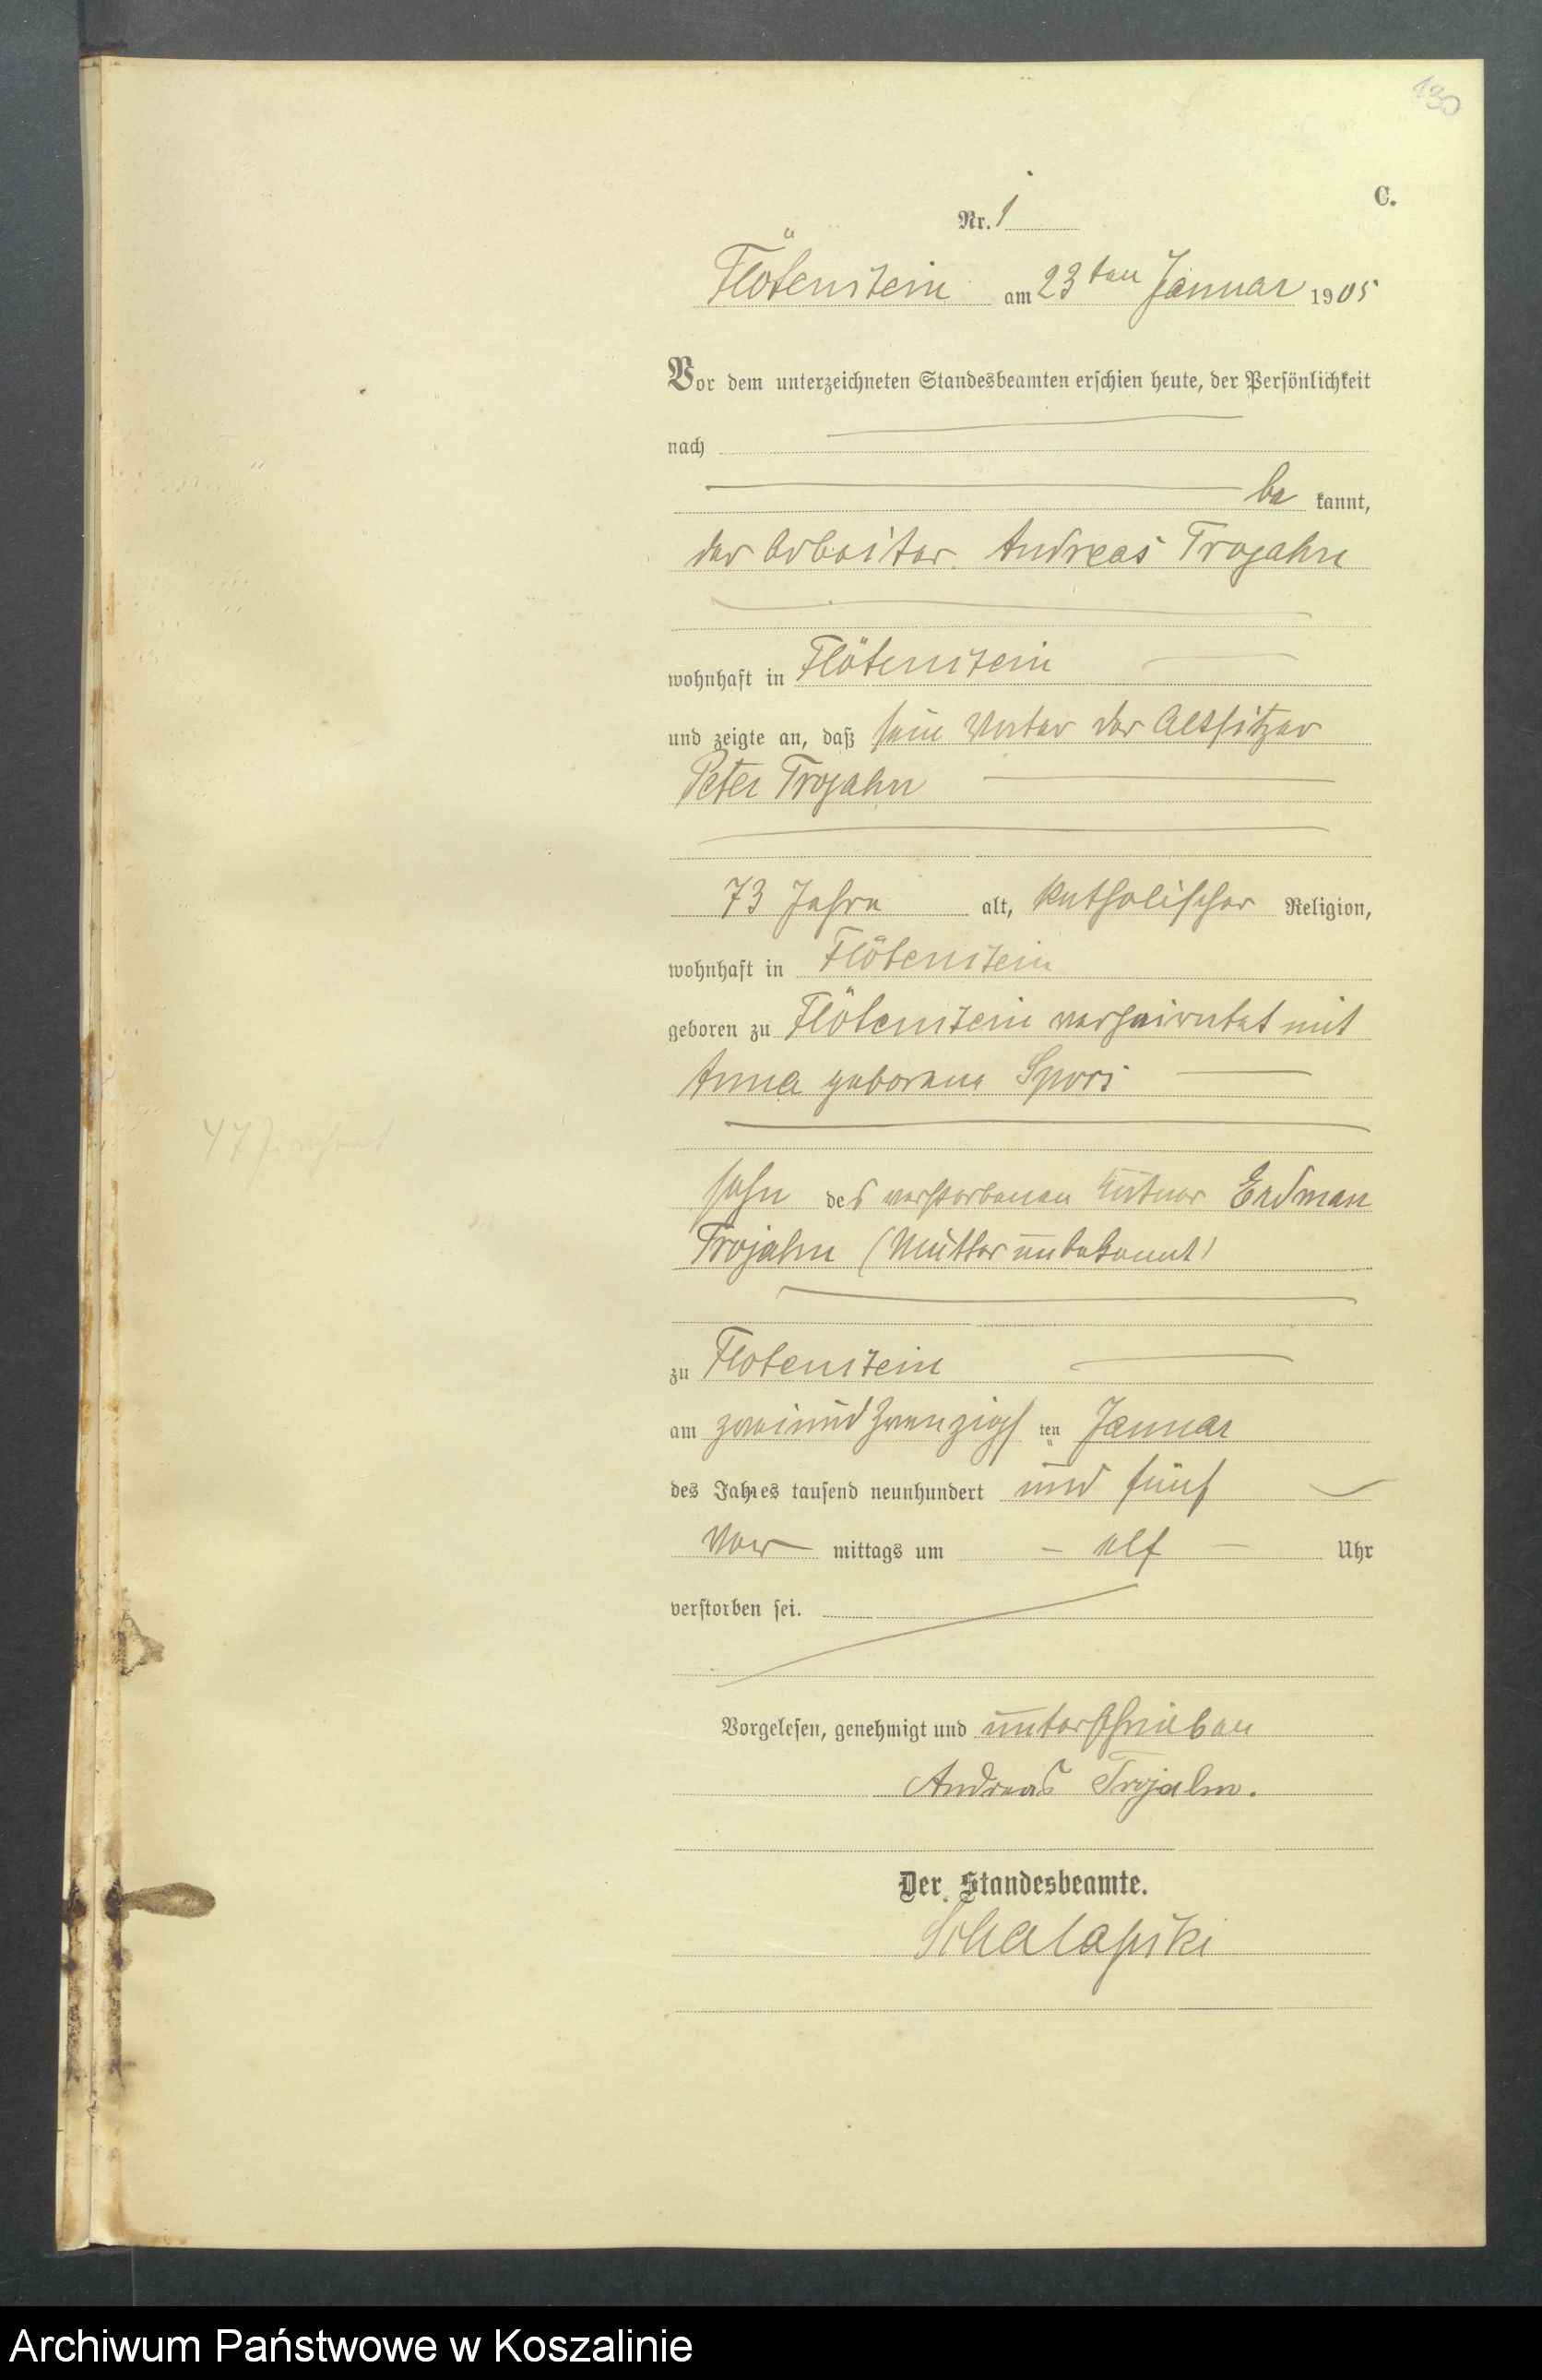 130
C.
Nr. 1
Flötenstein am 23ten Januar 1905
Vor dem unterzeichneten Standesbeamten erschien heute, der Persönlichkeit
nach
be kannt,
der Arbeiter Andreas Trojahn
wohnhaft in Flötenstein
und zeigte an, daß sein Vater der Altsitzer
Peter Trojahn
73 Jahre alt, katholischer Religion,
wohnhaft in Flötenstein
geboren zu Flötenstein verheiratet mit
Anna geborene Spors
sohn des verstorbenen Erdman
Trojahn (Mutter unbekannt)
zu Flotenstein
am zweiundzwanzigs ten Januar
des Jahres tausend neunhundert und fünf
Vor mittags um elf Uhr
verstorben sei.
Vorgelesen, genehmigt und unterschrieben
Andreas Trojahn.
Der Standesbeamte.
Archiwum Państwowe w Koszalinie